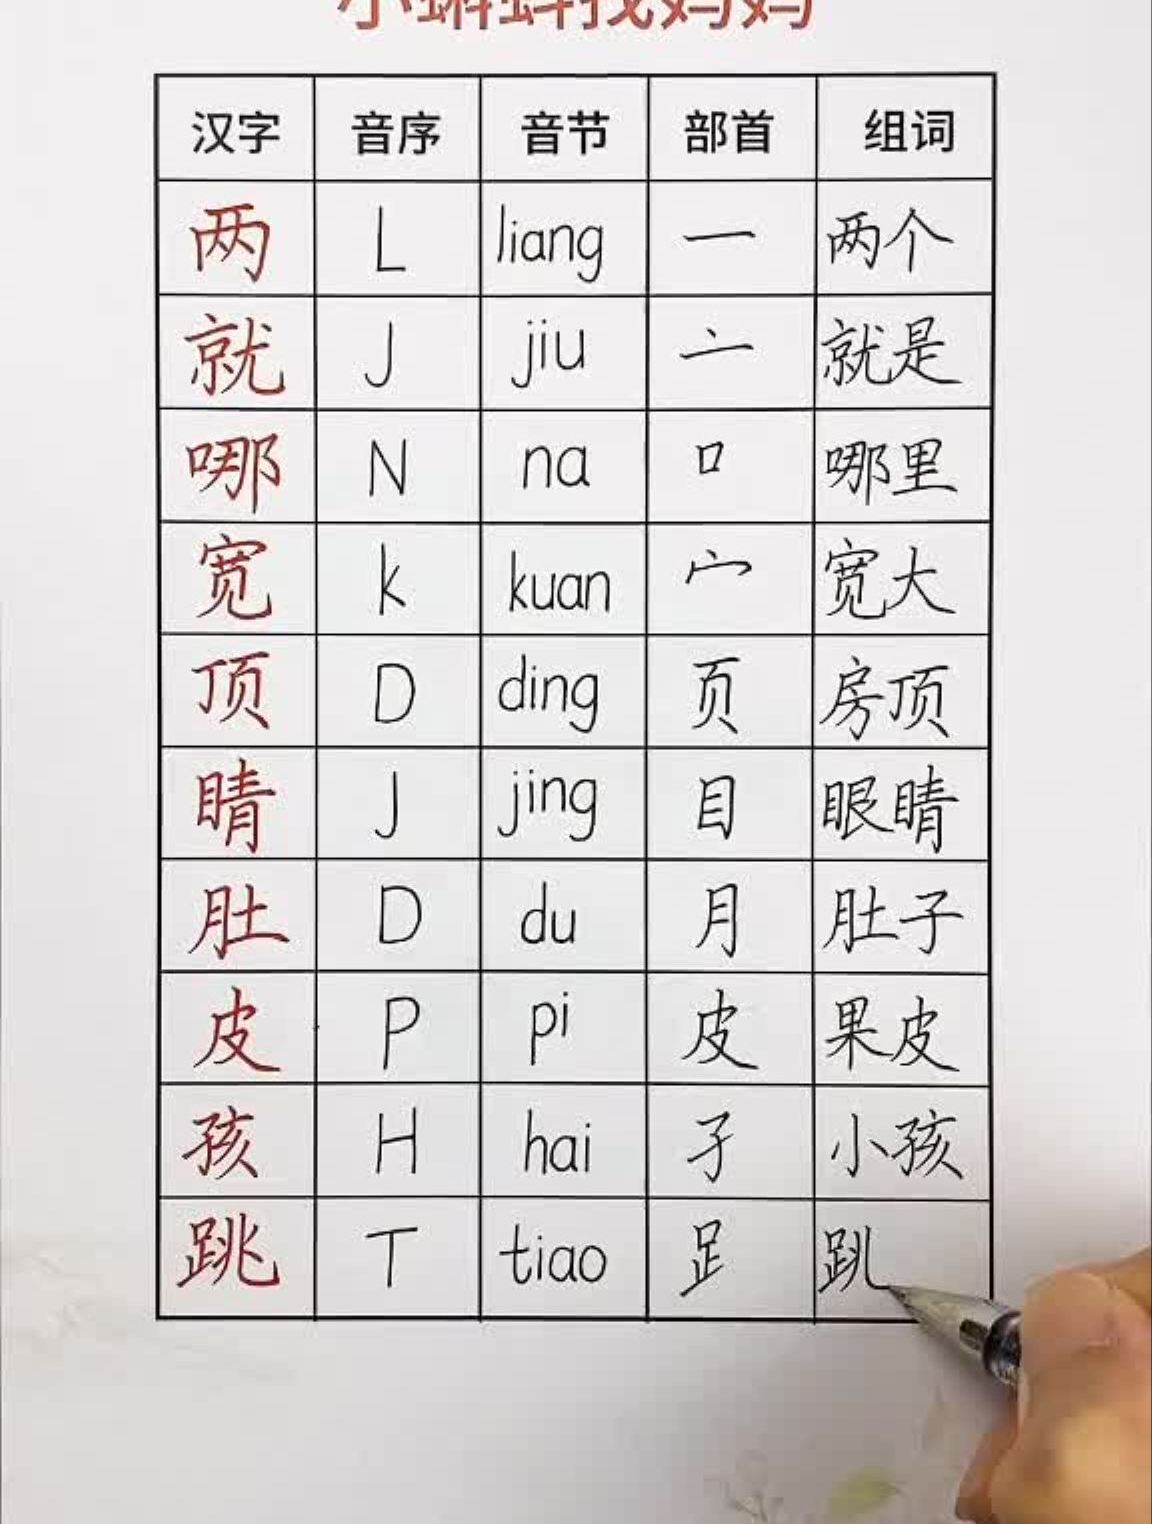 小蝌蚪找妈妈
汉字 音序 音节 部首 组词
两 L liang 一 两个
就 J jiu 亠 就是
哪 N na 口 哪里
宽 k kuan 宀 宽大
顶 D ding 页 房顶
睛 J jing 目 眼睛
肚 D du 月 肚子
皮 P pi 皮 果皮
孩 H hai 子 小孩
跳 T tiao 𧾷